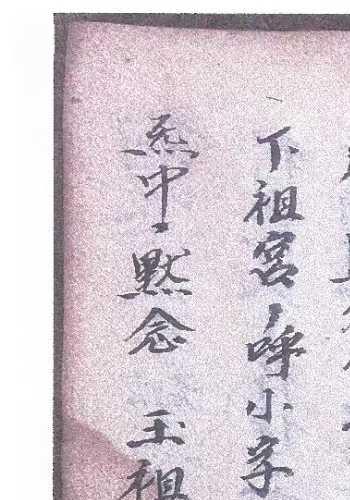 下祖宮呼小字
炁中默念 玉祖